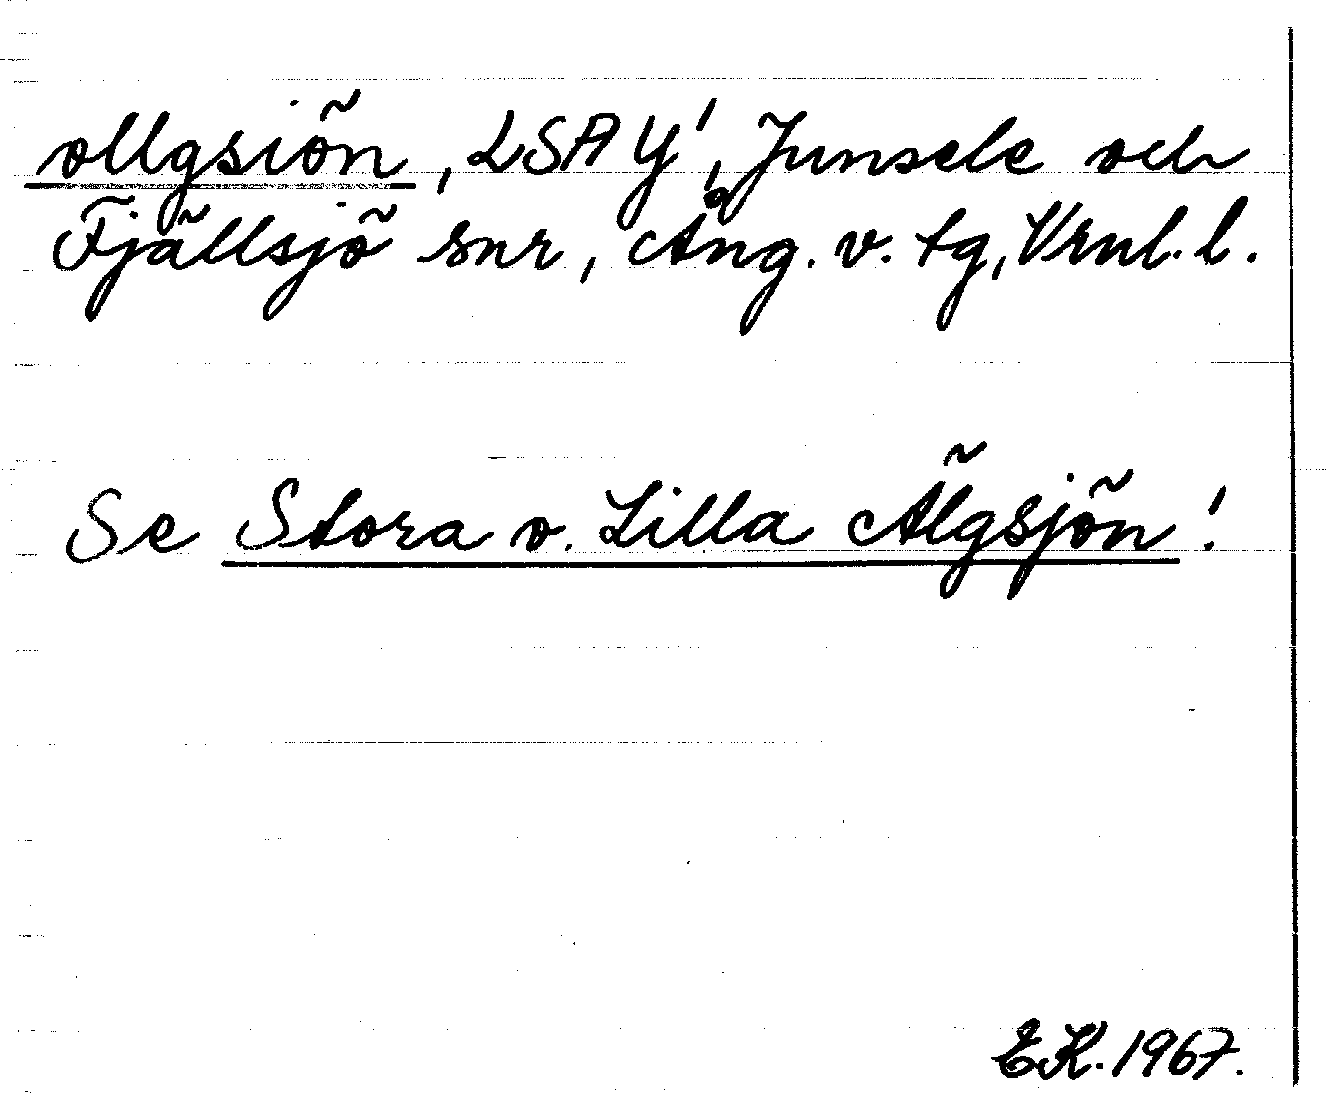 ollgsiön, LSA Y', Junsele och
Fjällsjö snr, Ång. v. tg, Vrnl. l.
Se Stora o. Lilla Älgsjön!
EK. 1967.